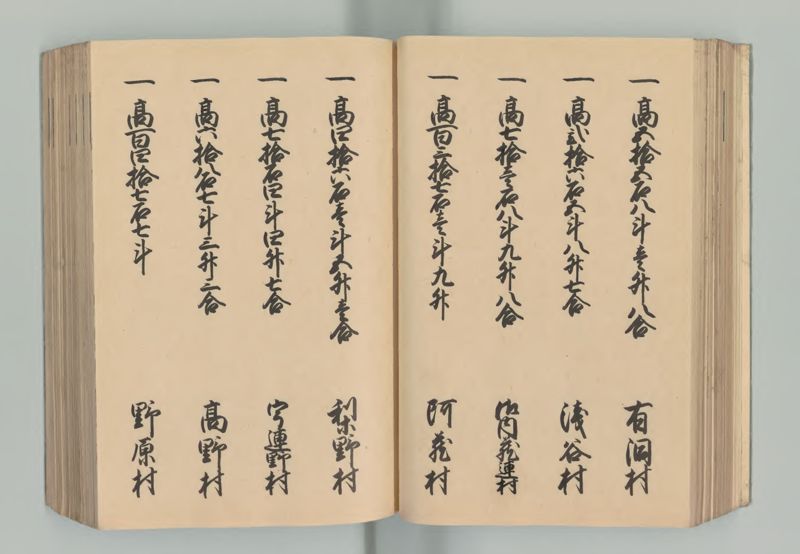 一 高五拾五石八斗壱升八合 有洞村
一 高弐拾六石五斗八升七合 浅谷村
一 高七拾壱石八斗九升八合 御内蔵連村
一 高百三拾七石壱斗九升 阿蔵村
一 高四拾六石壱斗五升壱合 梨野村
一 高七拾石四斗四升七合 宇連野村
一 高六拾八石七斗三升二合 高野村
一 高百四拾七石七斗 野原村